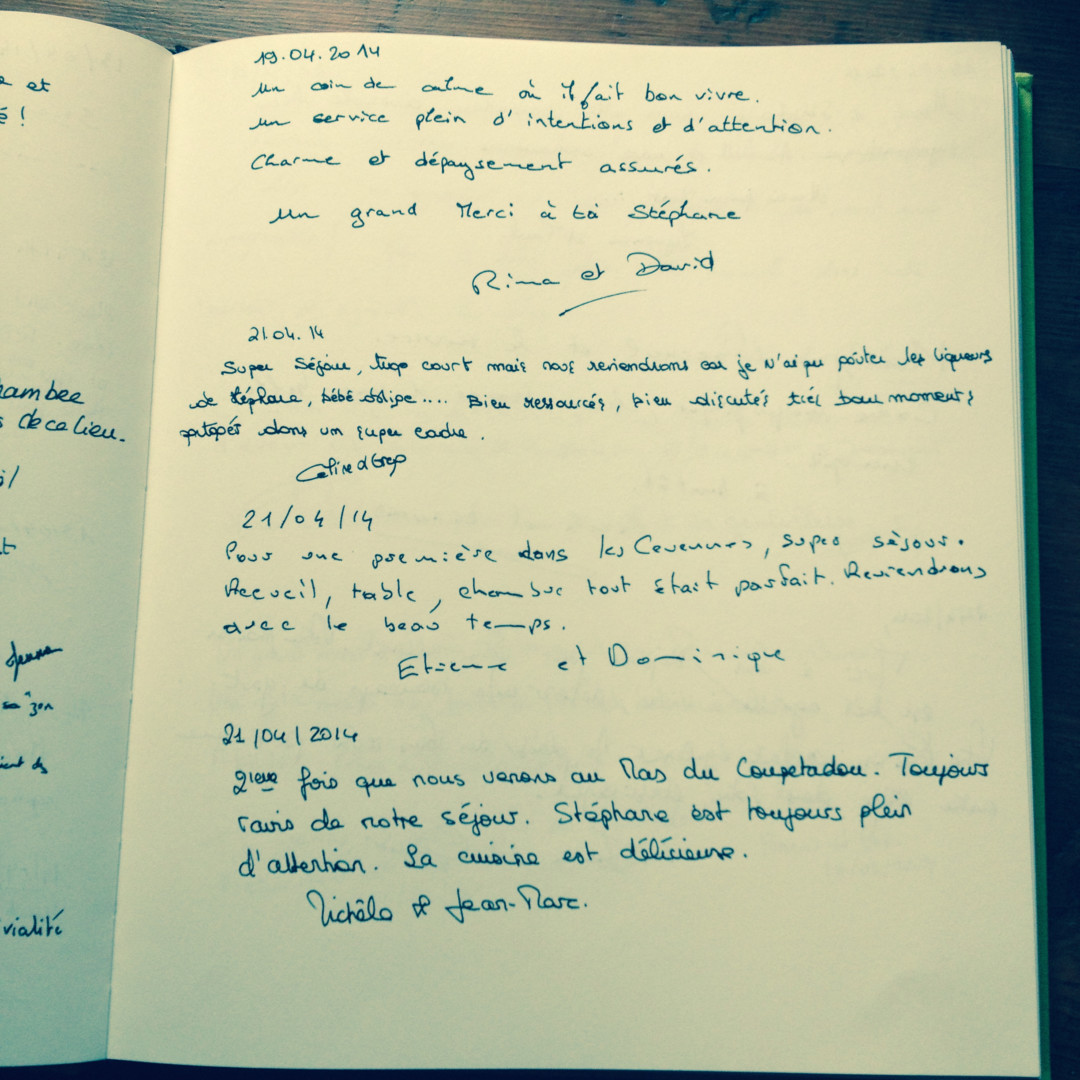 e et
é !
hambee
s de ce lieu.
vialité
19.04.2014
Un coin de calme où il fait bon vivre.
un service plein d'intentions et d'attention.
Charme et dépaysement assurés.
Un grand Merci à toi Stéphane
Rima et David
21.04.14
Super Séjour, trop court mais nous reviendrons car je N'ai pu goûter les liqueurs
de Stéphane, bébé oblige.... Bien ressourcés, bien discutés très bons moments
partagés dans un super cadre.
Celine & Greg
21/04/14
Pour une première dans les Cevennes, super séjour.
Accueil, table, chambre tout était parfait. Reviendrons
avec le beau temps.
Etienne et Dominique
21/04/2014
2ième fois que nous venons au Mas du Coupetadou. Toujours
ravis de notre séjour. Stéphane est toujours plein
d'attention. La cuisine est délicieuse.
Michèle & Jean-Marc.